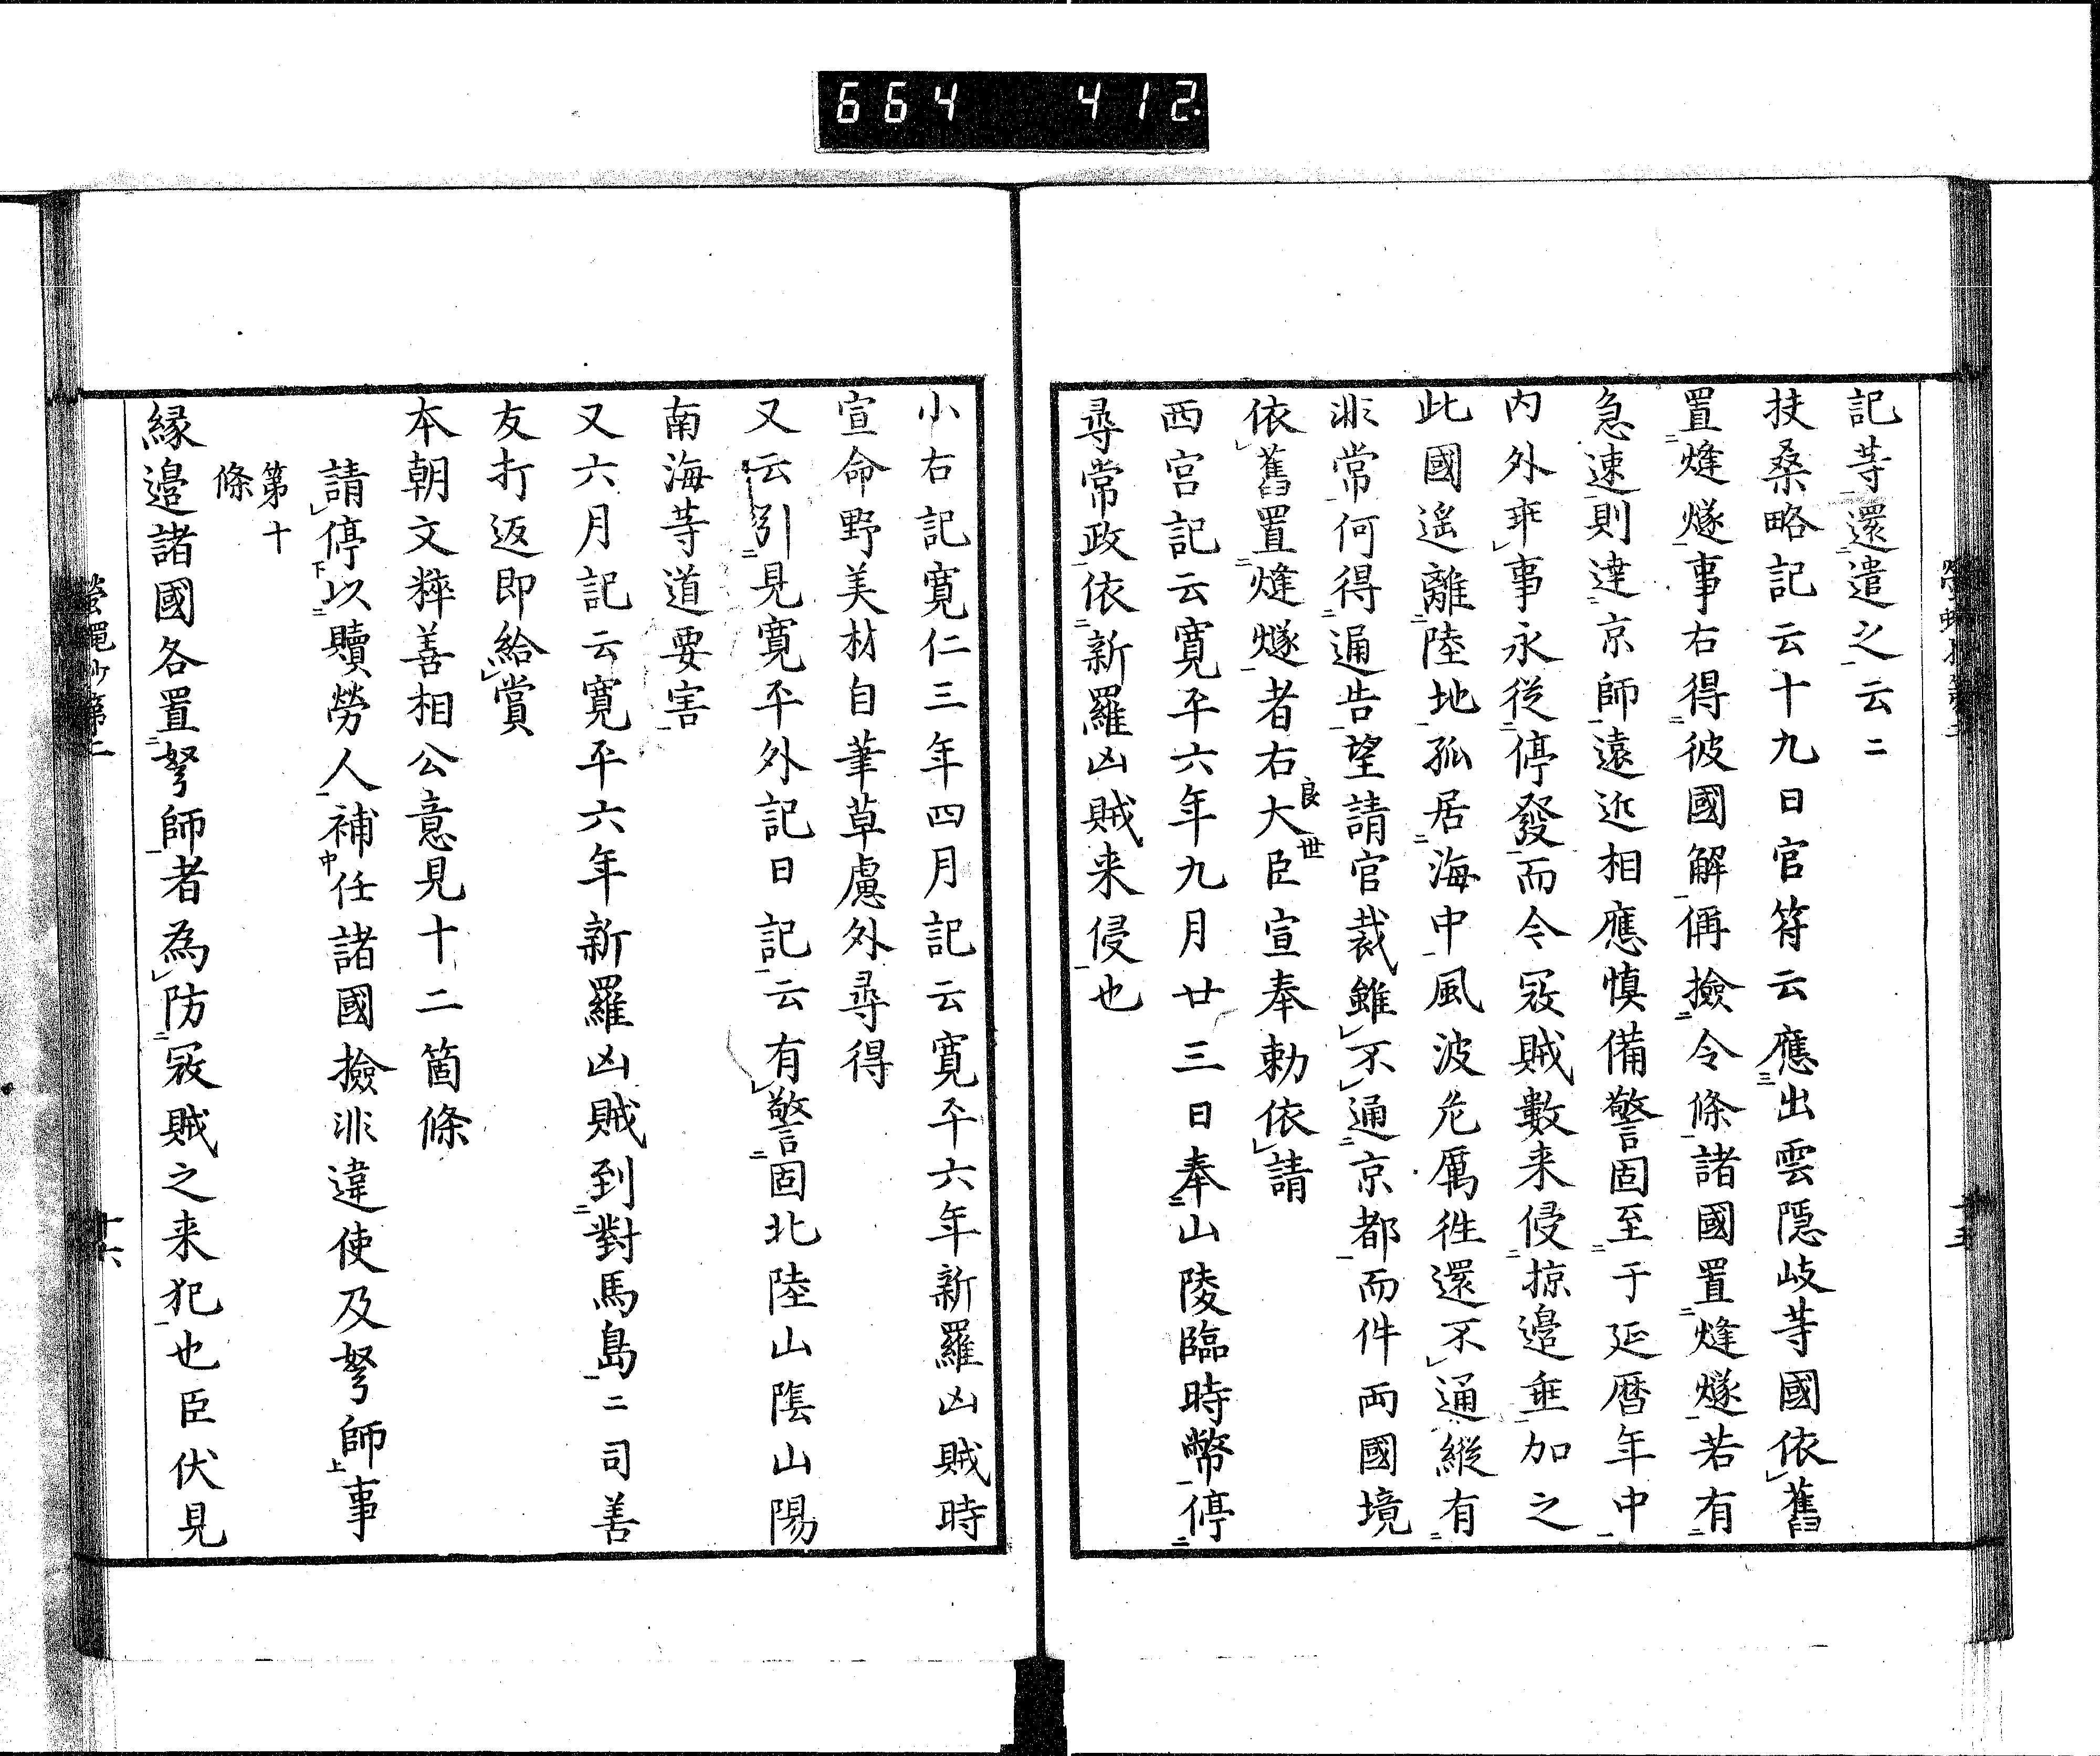 664 412
記等還遣之云々
扶桒略記云十九日官符云應出雲隠岐等國依舊
置烽燧事右得彼國解偁撿令條諸國置烽燧若有
急速則達京師遠近相應慎備警固至于延暦年中
内外乖事永従停發而令冦賊數来侵掠邊垂加之
此國遥離陸地孤居海中風波危厲徃還不通縦有
非常何得通告望請官裁雖不通京都而件両國境
依舊置烽燧者右大臣良世宣奉勅依請
西宮記云寛平六年九月廿三日奉山陵臨時幣停
尋常政依新羅凶賊来侵也
小右記寛仁三年四月記云寛平六年新羅凶賊時
宣命野美材自筆草慮外尋得
又云引見寛平外記日記云有警固北陸山隂山陽
南海等道要害
又六月記云寛平六年新羅凶賊到對馬島二司善
友打返即給賞
本朝文粹善相公意見十二箇條
請停以贖勞人補任諸國撿非違使及弩師事
第十
條
縁邉諸國各置弩師者為防冦賊之来犯也臣伏見
螢蠅抄第二
十六